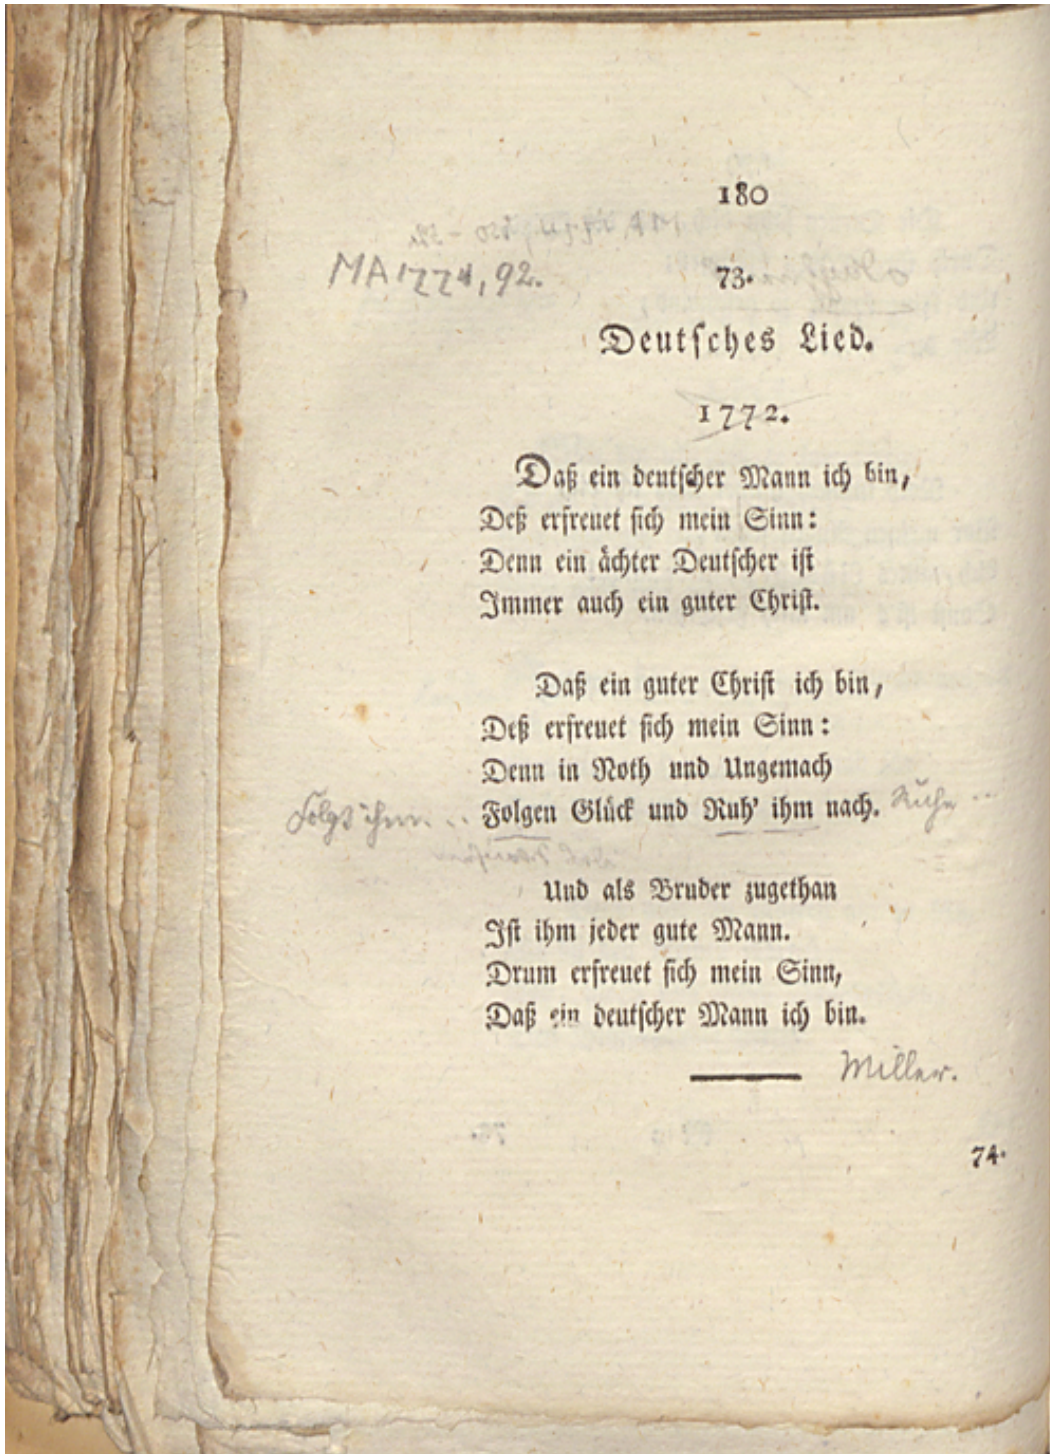 180
MA 1774, 92.
73.
Deutſches Lied.
1772.
Daß ein deutſcher Mann ich bin,
Deß erfreuet ſich mein Sinn:
Denn ein ächter Deutſcher iſt
Immer auch ein guter Chriſt.
Daß ein guter Chriſt ich bin,
Deß erfreuet ſich mein Sinn:
Denn in Noth und Ungemach
Folgt ihm .. Folgen Glück und Ruh' ihm nach. Ruhe ..
Und als Bruder zugethan
Iſt ihm jeder gute Mann.
Drum erfreuet ſich mein Sinn,
Daß ein deutſcher Mann ich bin.
Miller.
74.